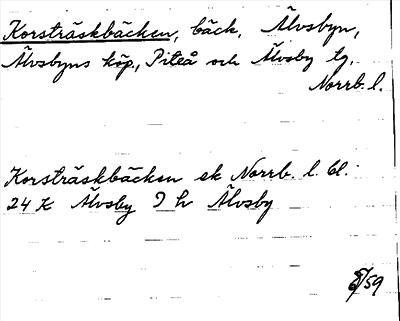 Korsträskbäcken, bäck, Älvsbyn,
Älvsbyns köp., Piteå och Älvsby tg,
Norrb. l.
Korsträskbäcken ek Norrb. l. bl.
24 K Älvsby 9 h Älvsby
/59